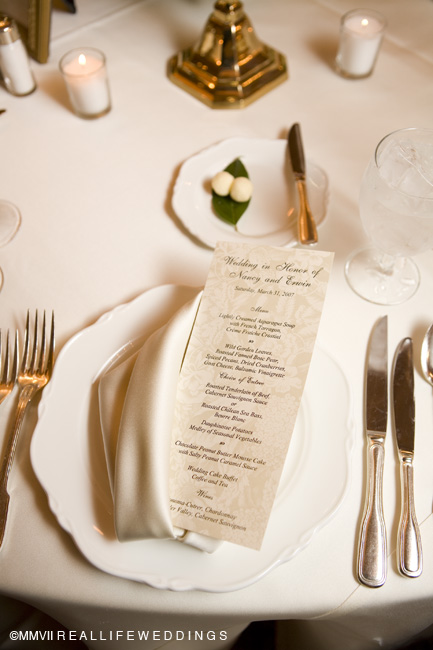 Wedding in Honor of
Nancy and Erwin
Saturday, March 31, 2007
Menu
Lightly Creamed Asparagus Soup
with French Tarragon,
Creme Fraiche Crostini
Wild Garden Leaves,
Roasted Pinwheel Bosc Pear,
Spiced Pecans, Dried Cranberries,
and Balsamic Vinaigrette
Choice of Entree
Roasted Tenderloin of Beef,
Cabernet Sauvignon Sauce
or
Roasted Chilean Sea Bass,
Beurre Blanc
Dauphinoise Potatoes
Medley of Seasonal Vegetables
Chocolate Peanut Butter Mousse Cake
with Salty Peanut Caramel Sauce
Wedding Cake Buffet
Coffee and Tea
Wines
Sonoma Cutrer, Chardonnay
Valley Oaks, Cabernet Sauvignon
©MMVII REALLIFEWEDDINGS